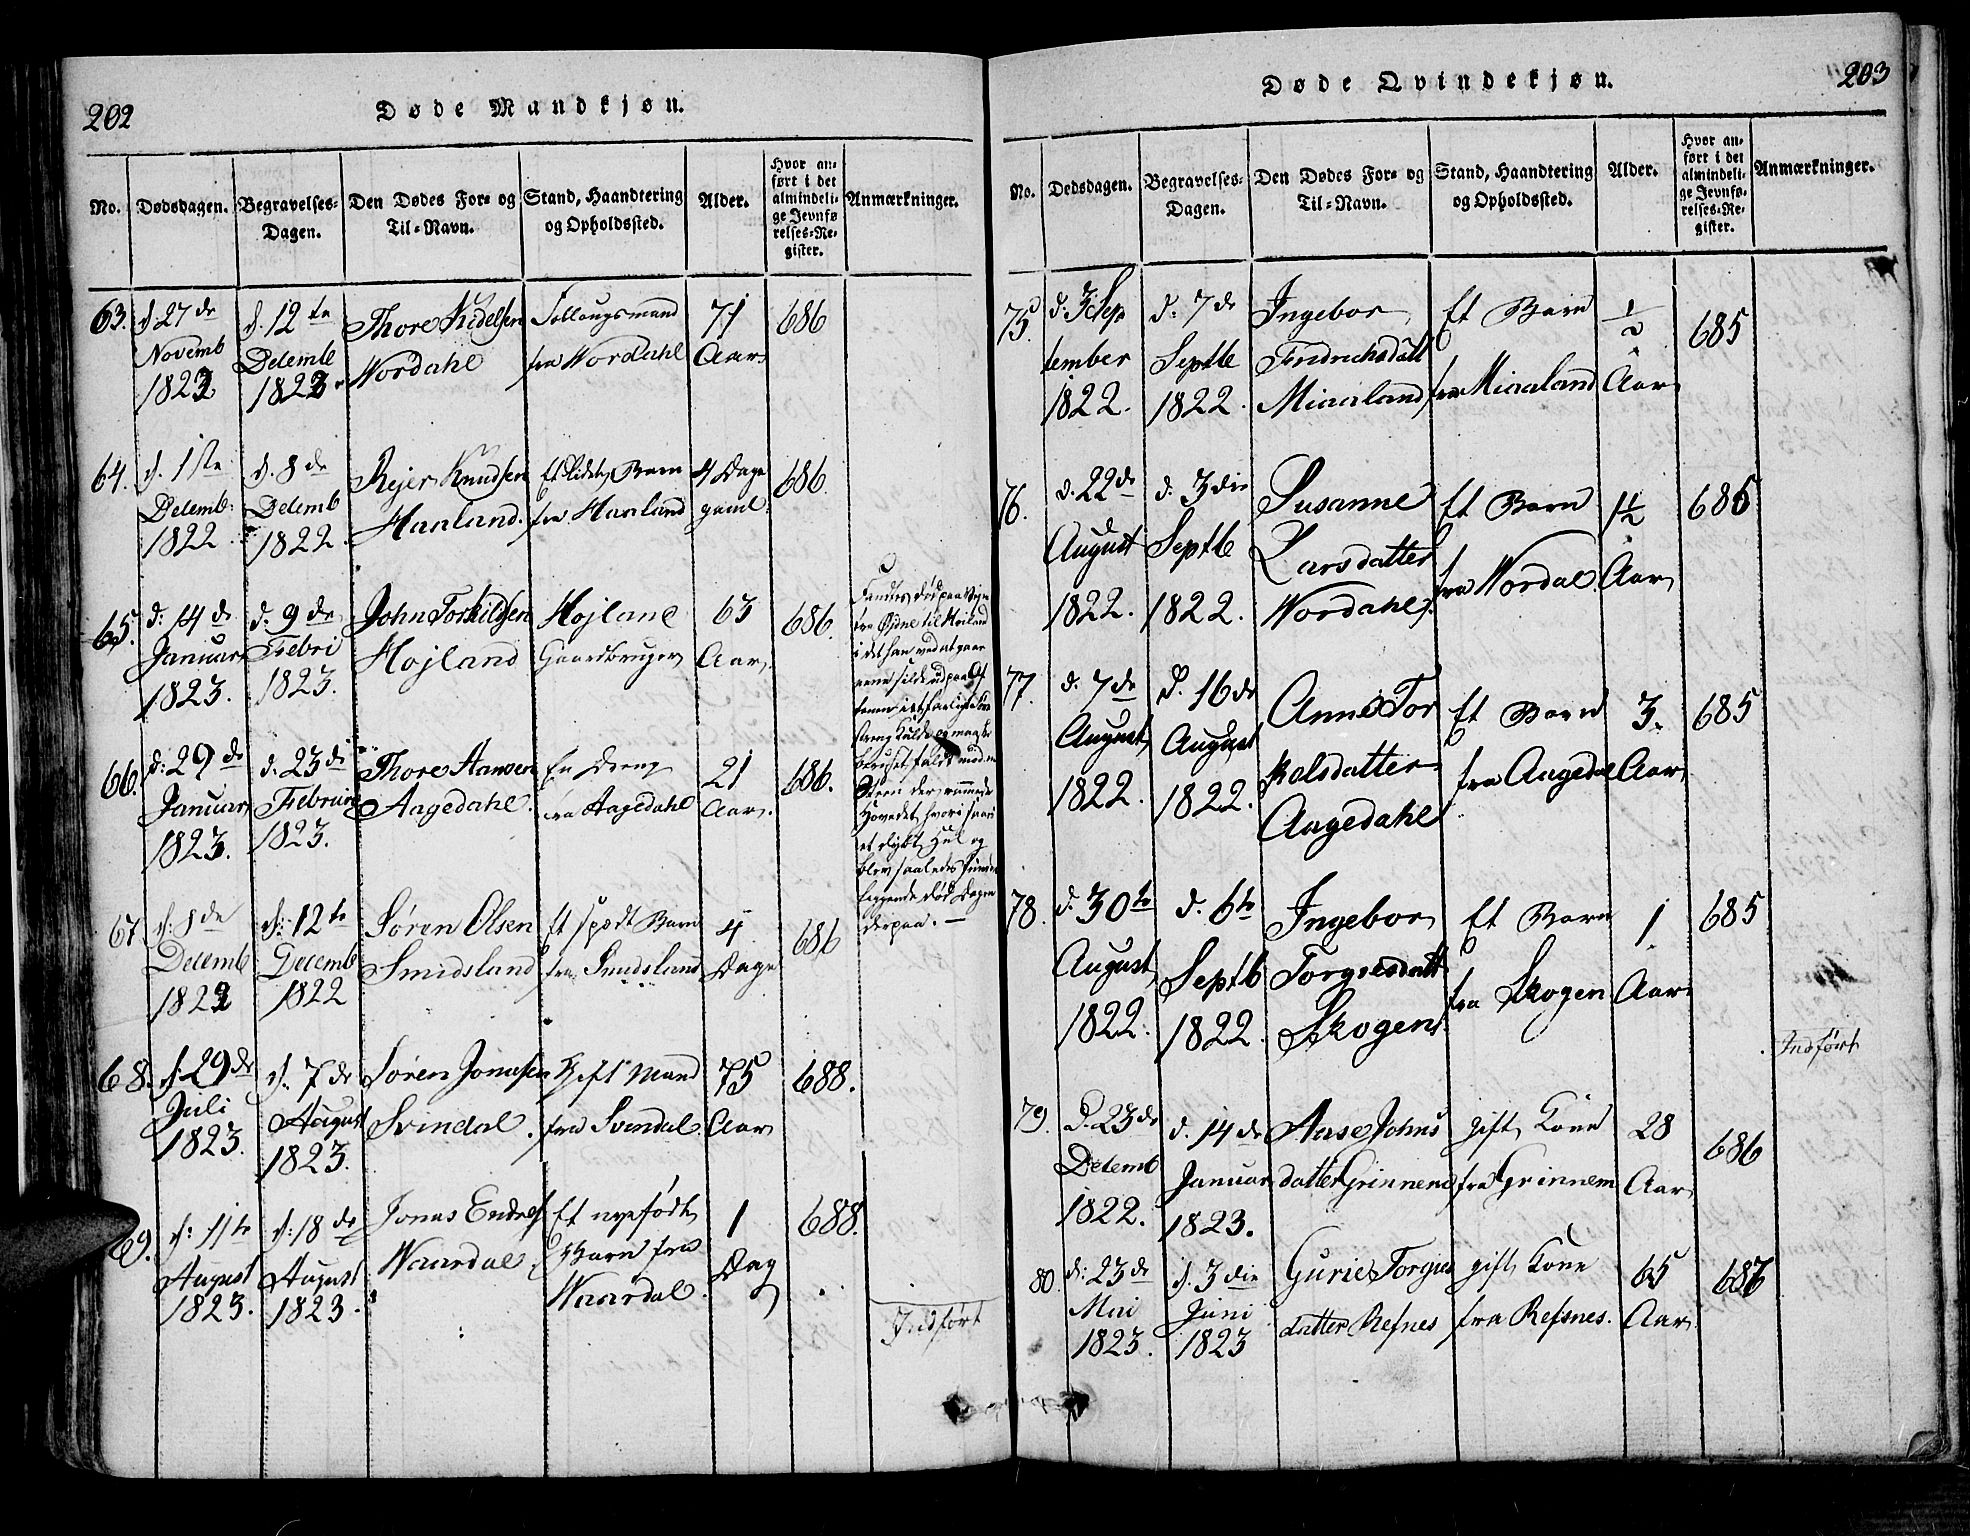 202
Døde Mandkjøn.
No.
Dødsdagen.
Begravelses-
Dagen.
Den Dødes For- og
Til-Navn.
Stand, Haandtering
og Opholdssted.
Alder.
Hvor an-
ført i det
almindeli-
ge Jevnfø
relses-Re-
gister.
Anmærkninger.
63.
d. 27de
Novemb
1822
d. 12te
Decemb
1822
Thore Kidelsen
Nordahl
fra Nordahl
71
Aar
686
64.
d. 1ste
Decemb:
1822
d. 8de
Decemb
1822
Rejer Knudsen
Haaland.
Et lidet Barn
fra Haaland
4 Dage
gaml.
686.
65.
d: 14de
Januar
1823.
d. 9de
Febri
1823.
John Torkildsen
Højland
Højland
Gaardbruger
63
Aar.
686.
66.
d: 29de
Januar
1823.
d. 23de
Februar
1823.
Thore Aanesen
Aagedahl.
En Dreng
fra Aagedahl
21
Aar.
686.
67
d: 8de
Decemb
1822
d: 12te
Decemb
1822
Søren Olsen
Smidsland
Et spædt Barn
fra Smidsland
4
Dage
686
derpaa. —
68.
d: 29de
Juli
1823.
d: 7de
August
1823.
Søren Jonasen
Svindal.
Gift Mand
fra Svindal.
75
Aar
688.
69.
d: 11te
August
1823.
d: 18de
August
1823.
Jonas Endres
Waardal
Et nyefødt
Barn fra
Waardal.
1
Dag
688.
Indført
203
Døde Qvindekjøn.
No.
Dødsdagen.
Begravelses-
Dagen.
Den Dødes For- og
Til-Navn.
Stand, Haandtering
og Opholdssted.
Alder.
Hvor an-
ført i det
almindeli-
ge Jevnfø-
relses-Re-
gister.
Anmærkninger.
75.
d: 3 Sep
tember
1822.
d: 7de
Septb
1822.
Ingebor
Fredrichsdatt
Miaaland
Et Barn
fra Miaaland
1/2
Aar
685
76.
d. 22de
August
1822.
d. 3die
Septb
1822.
Susanne
Larsdatter
Nordahl.
Et Barn
fra Nordal.
1 1/2
Aar
685
77.
d. 7de
August
1822.
d. 16de
August
1822.
Anne Tor
kelsdatter
Aagedahl
Et Barn
fra Aagedal
3.
Aar
685
78.
d. 30te
August
1822.
d. 6te
Septb
1822.
Ingebor
Torgiesdatt
Skogen.
Et Barn
fra Skogen
1
Aar
685
Indført
79.
d. 23de
Decemb
1822.
d. 14de
Januar
1823.
Aase Johns
datter Grinnem
gift Kone
fra Grinnem
28
Aar
686
80.
d: 23de
Mai
1823.
d. 3die
Juni
1823
Gurie Torgies
datter Refnes
gift Kone
fra Refsnes.
65
Aar.
687